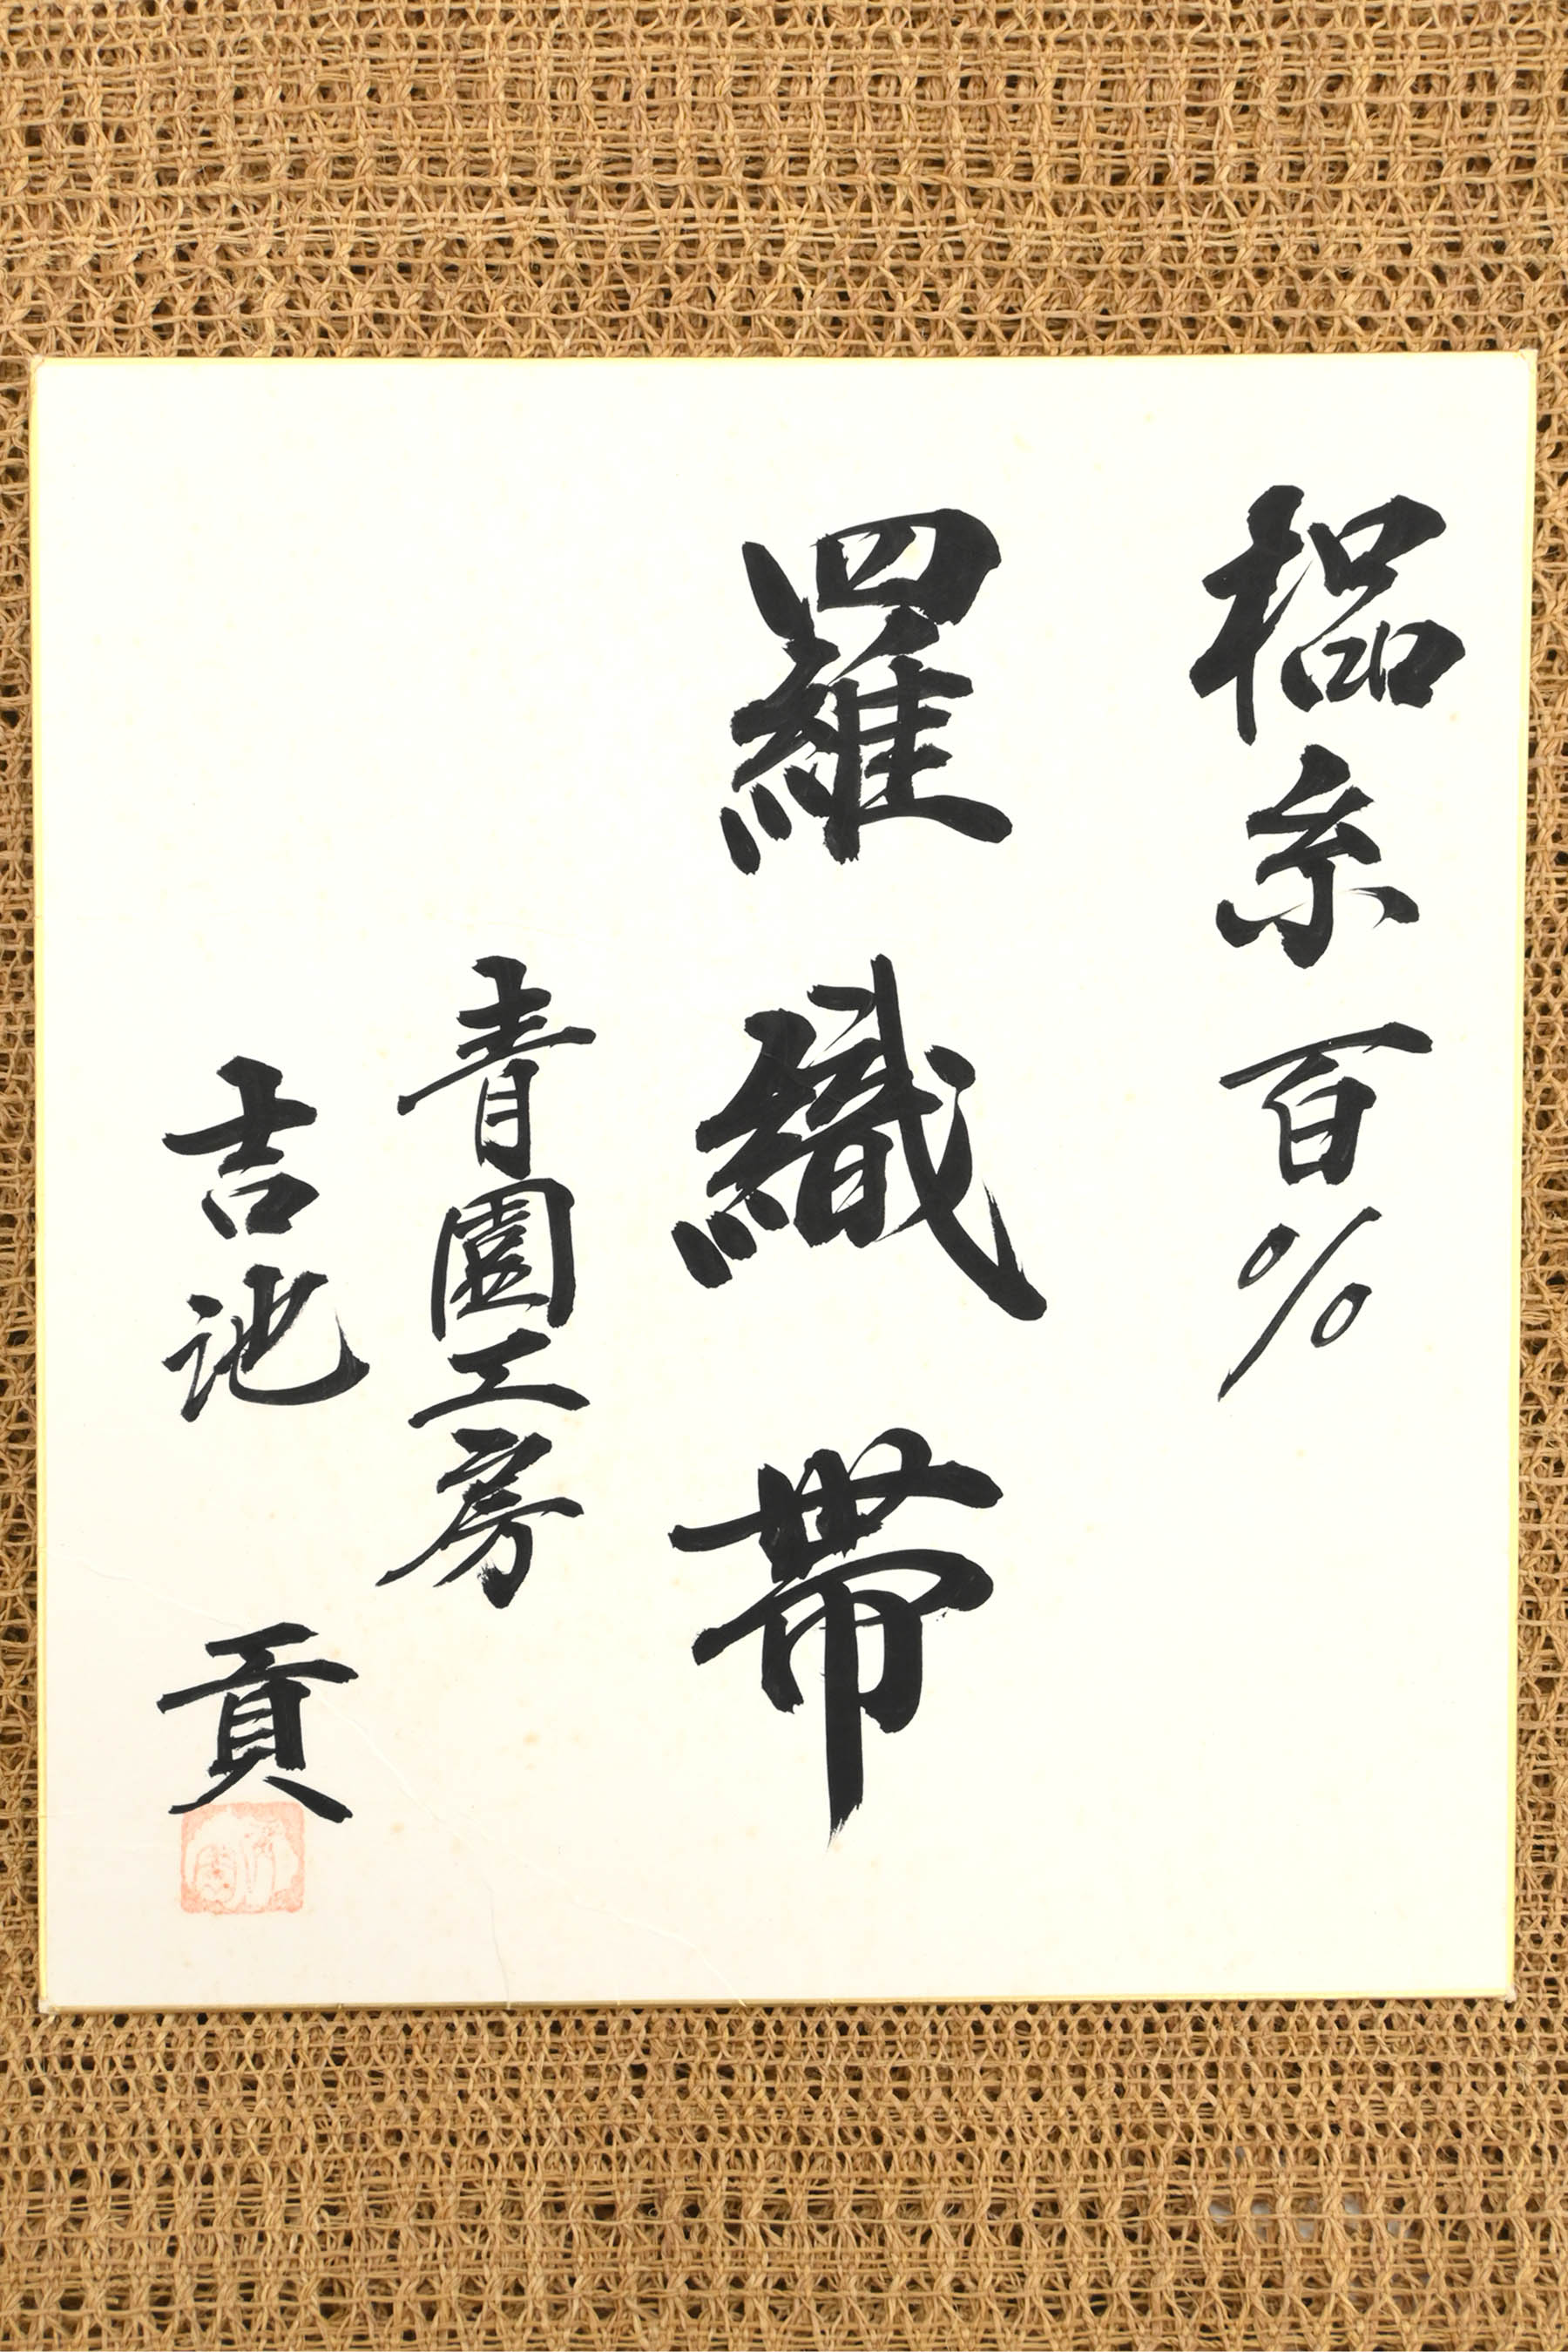 榀糸百%
羅織帯
青園工房
吉池 貢